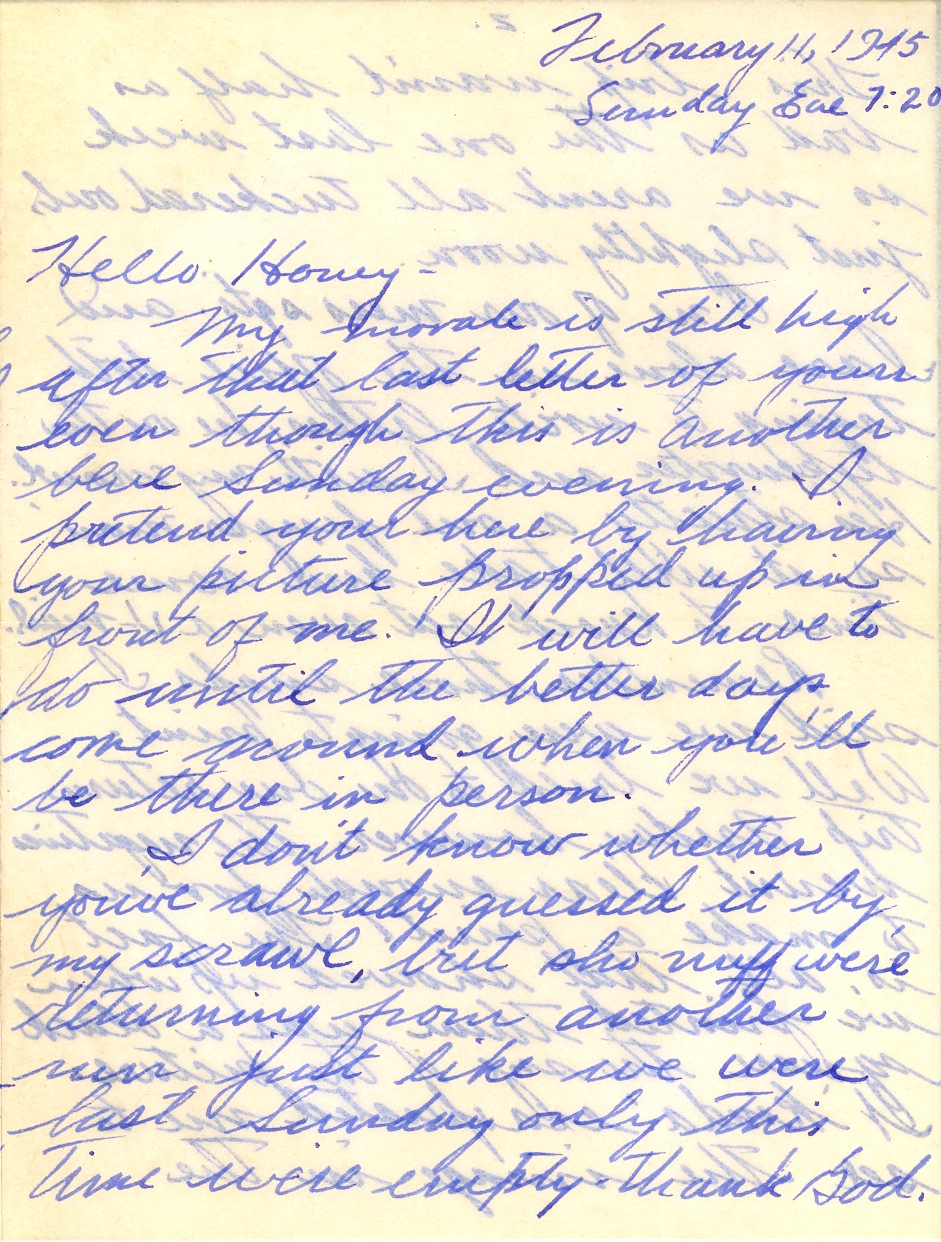 February 11, 1945
Sunday Eve 7:20
Hello Honey-
My morale is still high
after that last letter of yours
even though this is another
blue Sunday evening. I
pretend your here by having
your picture propped up in
front of me. It will have to
do until the better days
come around when you'll
be there in person.
I don't know whether
you've already guessed it by
my scrawl, but sho nuff we're
returning from another
run just like we were
last Sunday only this
time we're empty - thank God.